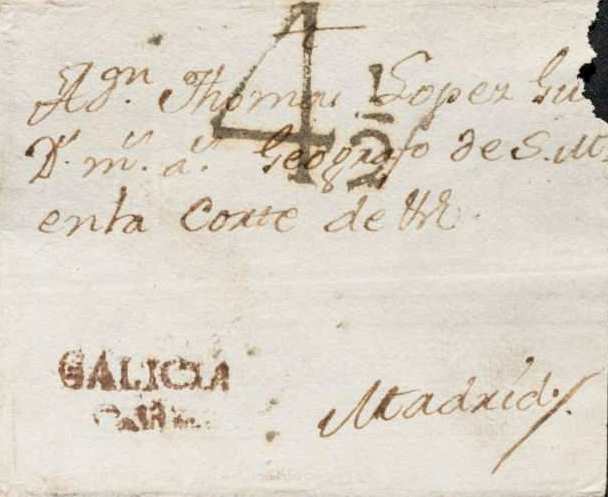 4 1/2
A Dn. Thomas Lopez
Dr. mr. ar. Geografo de S. M
enla Corte de
GALICIA
Madrid